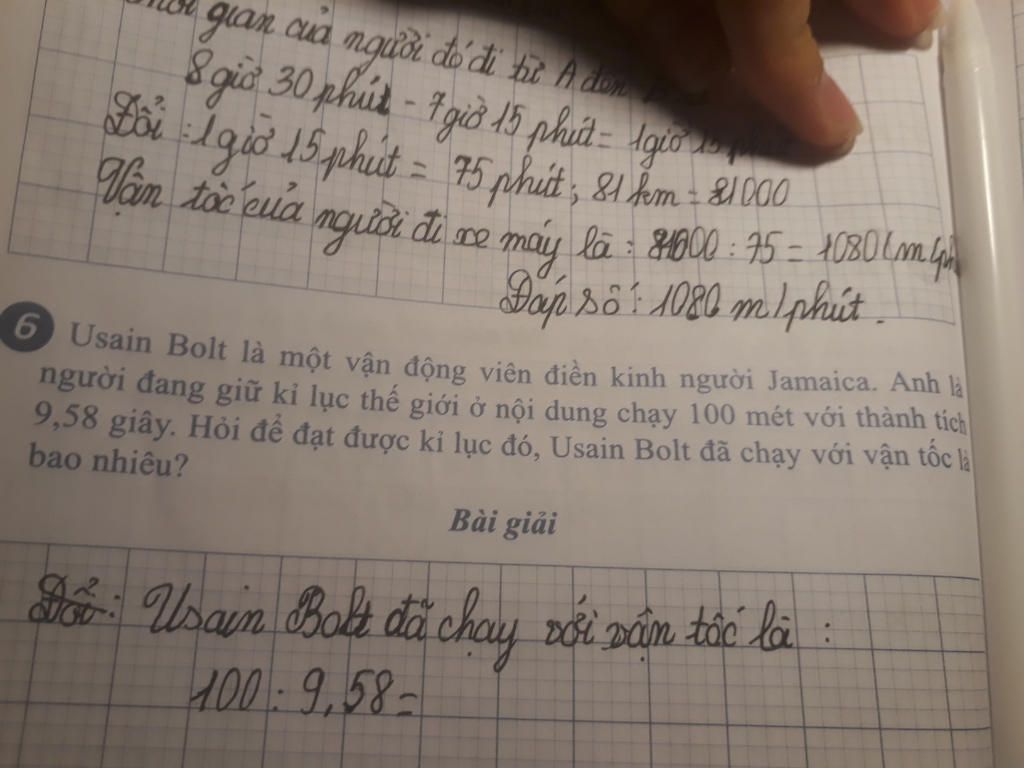 gian của người đó đi từ A đến
8 giờ 30 phút - 7 giờ 15 phút = 1 giờ 15 phút
Đổi : 1 giờ 15 phút = 75 phút ; 81 km = 81000
Vận tốc của người đi xe máy là : 81000 : 75 = 1080 (m/ph
Đáp số : 1080 m/phút .
6 Usain Bolt là một vận động viên điền kinh người Jamaica. Anh là
người đang giữ kỉ lục thế giới ở nội dung chạy 100 mét với thành tích
9,58 giây. Hỏi để đạt được kỉ lục đó, Usain Bolt đã chạy với vận tốc là
bao nhiêu?
Bài giải
Đổi : Usain Bolt đã chạy với vận tốc là :
100 : 9,58 =